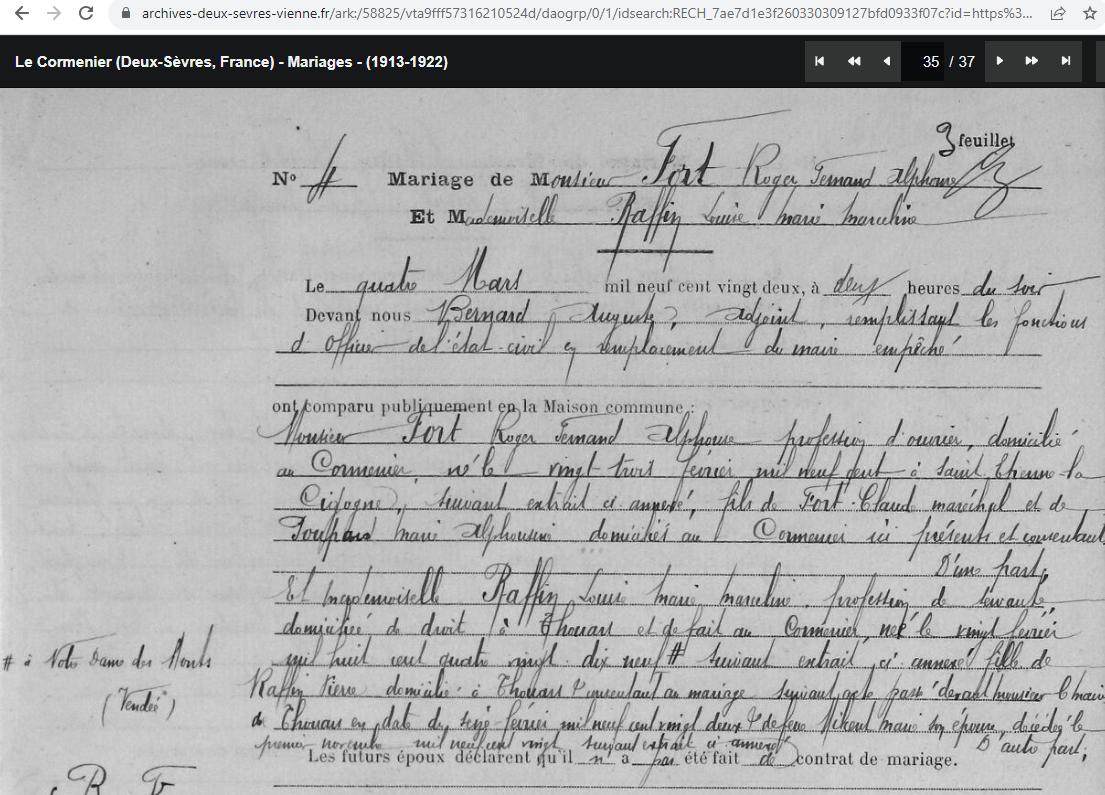 archives-deux-sevres-vienne.fr/ark:/58825/vta9fff57316210524d/daogrp/0/1/idsearch:RECH_7ae7d1e3f260330309127bfd0933f07c?id=https%3...
Le Cormenier (Deux-Sèvres, France) - Mariages - (1913-1922)
35 / 37
3 feuillet
N° 4 Mariage de Monsieur Fort Roger Fernand Alphonse
Et Mademoiselle Raffin Louise Marie Marceline
Le quatre Mars mil neuf cent vingt deux, à deux heures du soir
Devant nous Bernard Auguste, adjoint, remplissant les fonctions
d'Officier de l'état-civil en remplacement du maire empêché
ont comparu publiquement en la Maison commune :
Monsieur Fort Roger Fernand Alphonse profession d'ouvrier, domicilié
au Cormenier, né le vingt trois février mil neuf cent à Saint Etienne la
Cigogne, suivant extrait ci annexé, fils de Fort Claud maréchal et de
marie Alphonsine domiciliés au Cormenier ici présents et consentant
D'une part,
Et mademoiselle Raffin Louise marie marceline, profession de servante,
domiciliée de droit à Thouars et de fait au Cormenier, née le vingt février
mil huit cent quatre vingt dix neuf # suivant extrait ci annexé fille de
# à Notre Dame des Monts
(Vendée)
Raffin Pierre domicilié à Thouars & consentant au mariage suivant acte passé devant monsieur l maire
de Thouars en date du seize février mil neuf cent vingt deux & de feue marie son épouse, décédée le
premier novembre mil neuf cent vingt suivant extrait ci annexé D'autre part,
Les futurs époux déclarent qu'il n'a pas été fait de contrat de mariage.
R F